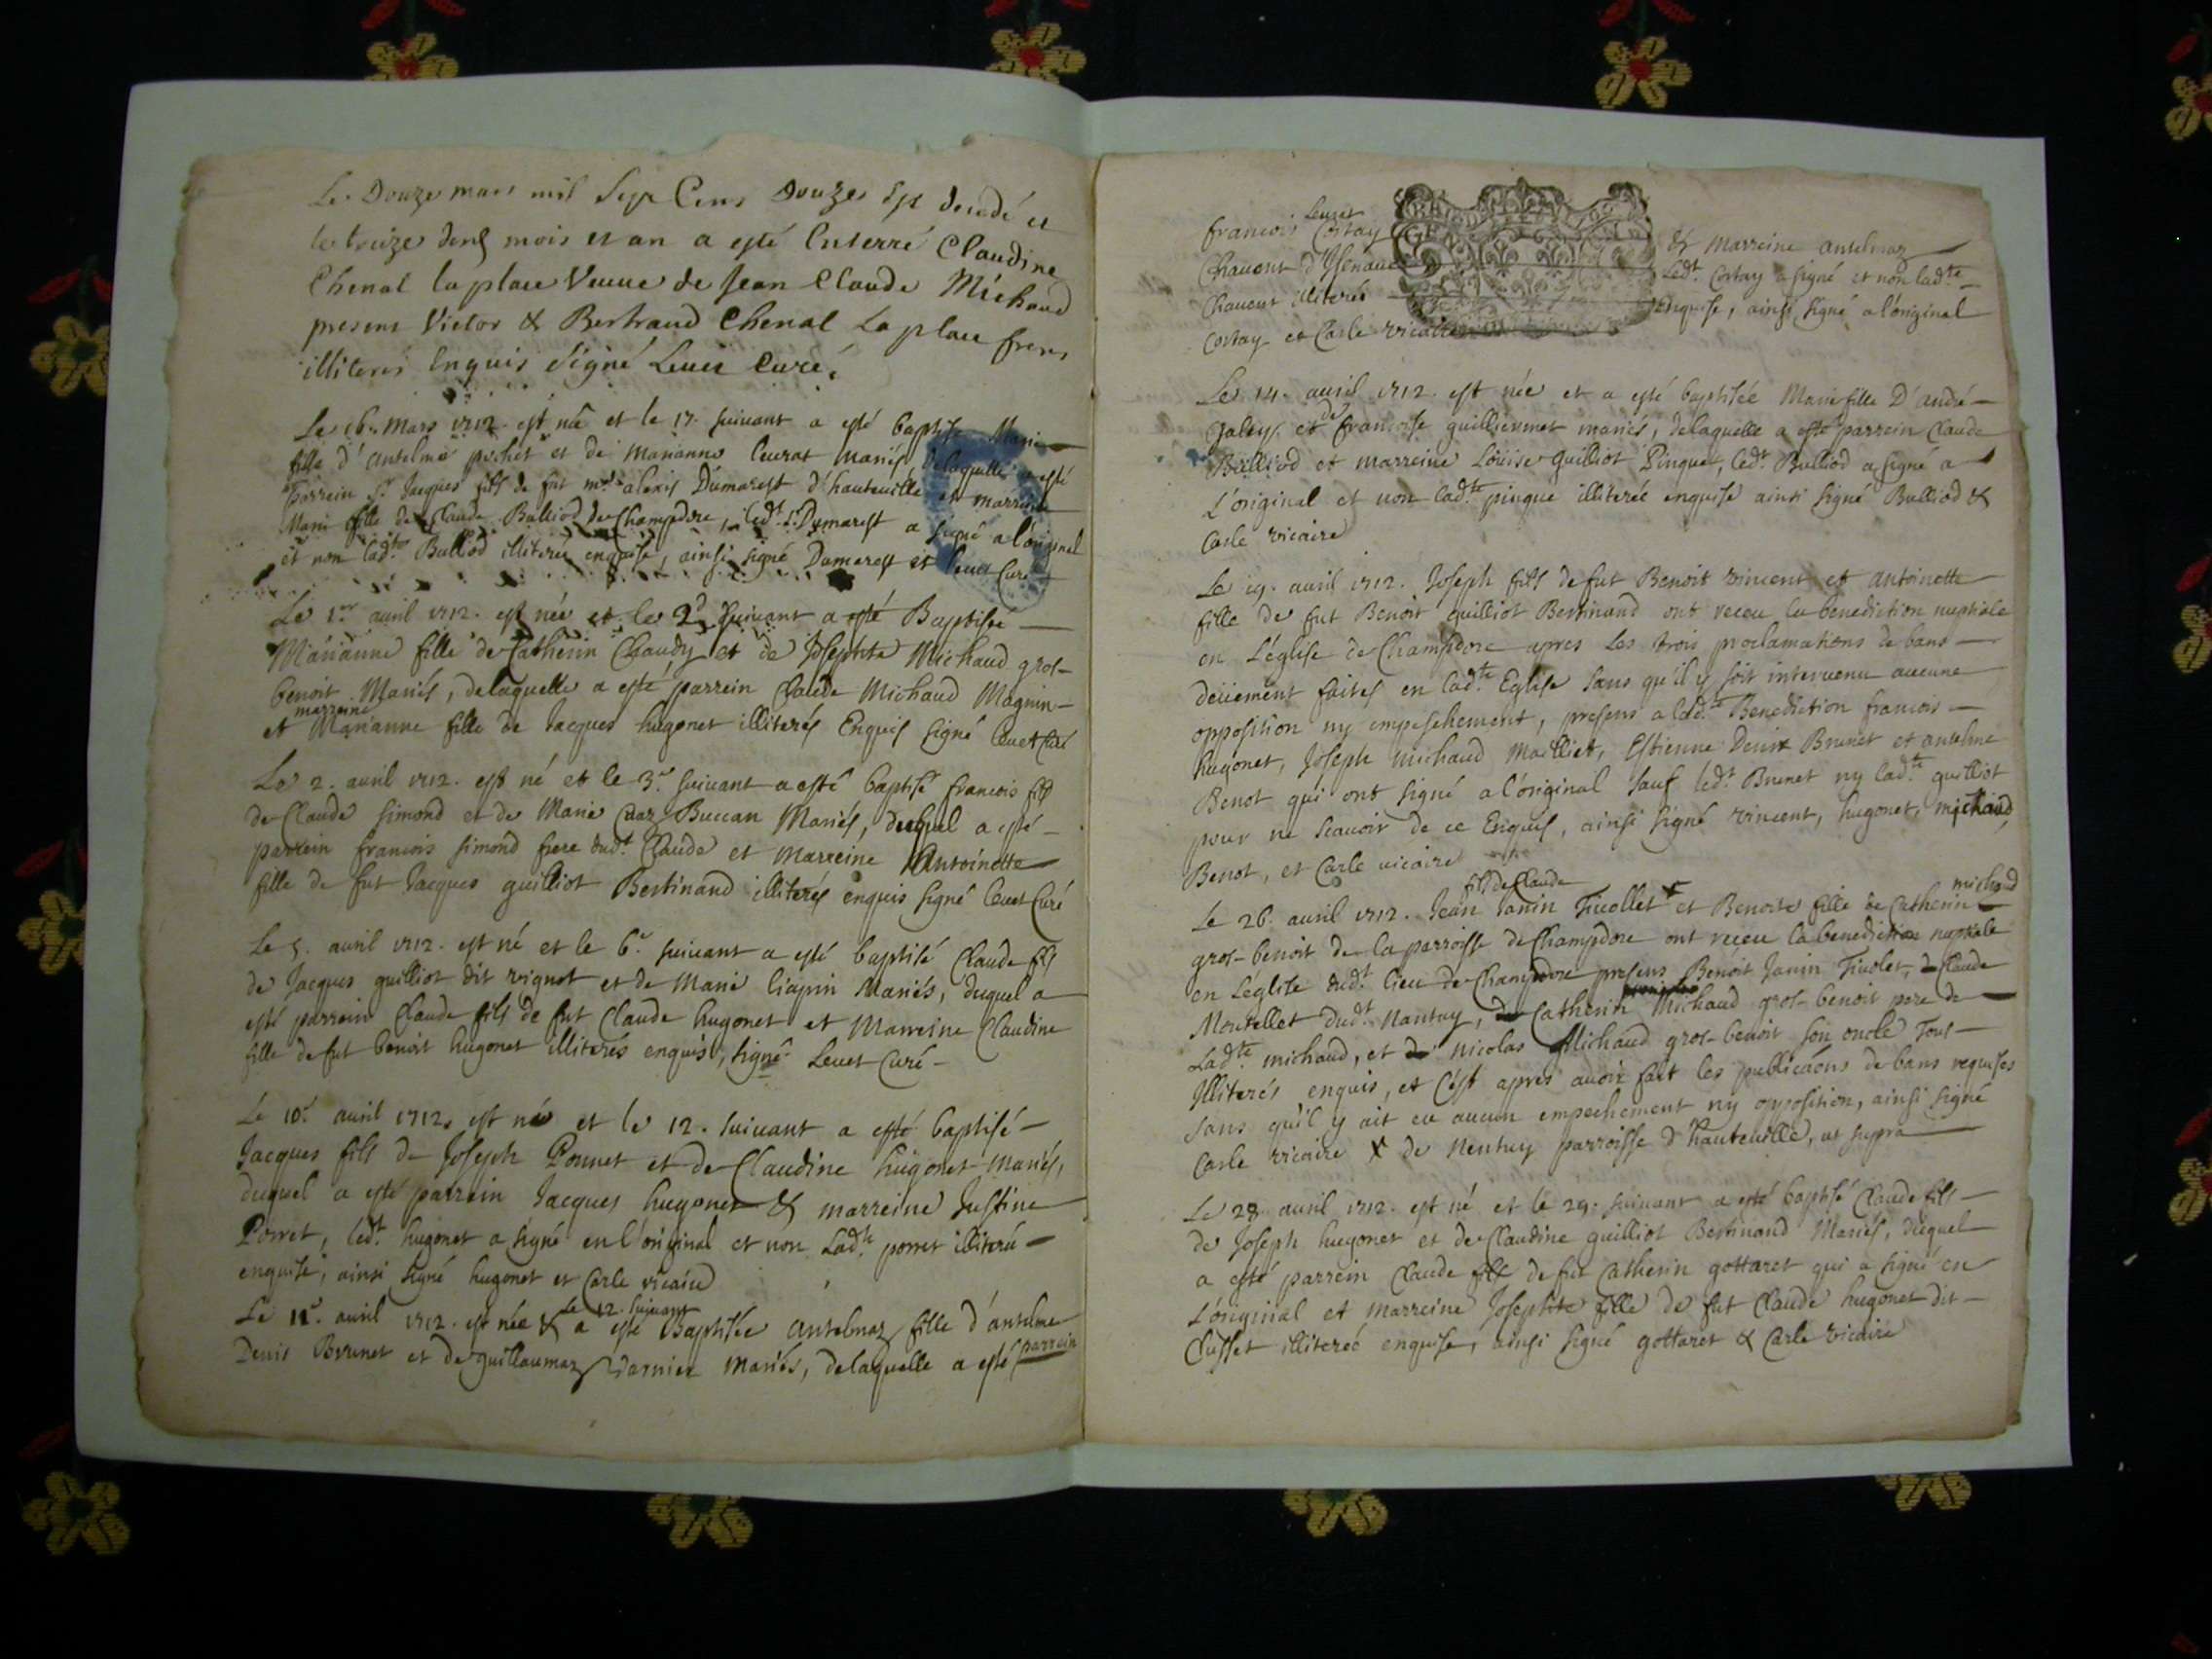 Le Douze mars mil sept Cens Douzes est decedé et
le treize desd mois et an a esté Enterré Claudine
Chenal la place Veuve de Jean Claude Michaud
presens Victor & Bertrand Chenal La place freres
illiteres Enquis Signé Leuet Curé.
Le 16. Mars 1712. est née et le 17. suivant a esté baptisée Marie
fille d'Anselme pochet et de Marianne leurat mariés delaquelle a esté
Parrein Sr. Jacques fils de fut mre alexis Dumarest d'hauteville et marreine
Marie fille de Claude Balliod de Champdore, ledt. Sr. Dumarest a signé a l'original
et non ladte. Balliod illiterée enquise, ainsi signé Dumarest et leuet Curé
Le 1er avril 1712. est née et le 2d suivant a esté Baptisée
Marianne fille de Catherin Chaudy et de Josephte Michaud gros-
benoit Mariés, delaquelle a esté parrein Claude Michaud Magnin-
marreine
et Marianne fille de Jacques hugonet illiterés Enquis signé leuet Curé
Le 2. avril 1712. est né et le 3e suivant a esté baptisé francois fils
de Claude simond et de Marie Buccan Mariés, duquel a esté-
parrein francois simond frere dudt. Claude et marreine Antoinette
fille de fut Jacques guilliot Bertinand illiterés enquis signé leuet Curé
Le 5. avril 1712. est né et le 6e suivant a esté baptisé Claude fils
de Jacques guilliot dit vignet et de Marie Mariés, duquel a
esté parrein Claude fils de fut Claude hugonet et Marreine Claudine
fille de fut benoit hugonet illiterés enquis, signé Leuet Curé-
Le 10e avril 1712. est né et le 12. suivant a esté baptisé-
Jacques fils de Joseph Ponnet et de Claudine hugonet mariés,
duquel a esté parrein Jacques hugonet & marreine Justine
Porret, ledt. hugonet a signé en l'original et non Ladte. porret illiterée-
enquise, ainsi signé hugonet et Carle vicaire
le 12. suivant
Le 11e. avril 1712. est née & a esté Baptisée Anselmaz fille d'anselme
Denis Brunet et de guillaumaz Varnier mariés, delaquelle a esté parrein
Leuret
francois Costay & marreine anselmaz
Chavent d'Isenave Ledt. Costay a signé et non ladte
Chavent illiterée enquise, ainsi signé a l'original
Costay et Carle vicaire
Le 14. avril 1712. est née et a esté baptisée Marie fille D'andré-
de
Jaley. et francoise guilliermet mariés, delaquelle a esté parrein Claude
Balliod et marreine Loüise guilliot Pinque, ledt. Balliod a signé a
L'original et non ladte. pinque illiterée enquise ainsi signé Balliod &
Carle vicaire
Le 19. avril 1712. Joseph fils de fut Benoit vincent et antoinette
fille de fut Benoit guilliot Bertinand ont receu la benediction nuptiale
en L'église de Champdore apres les trois proclamations de bans-
deüement faites en ladte. Eglise sans qu'il y soit intervenu aucune
opposition ny empeschement, presens a ladte Benediction francois-
hugonet, Joseph michaud Mailliet, Estienne Denix Brunet et anselme
Benot qui ont signé a l'original sauf ledt Brunet ny ladte. guilliot
pour ne scavoir de ce Enquis, ainsi signé vincent, hugonet, michaud,
Benot, et Carle vicaire
fils de Claude michaud
Le 26. avril 1712. Jean Janin Tivollet X et Benoite fille de Catherin
gros-benoit de la parroisse de Champdore ont receu la benediction nuptiale
en L'église dudt. lieu de Champdore presens Benoit Janin Tivolet, Claude
Moutellet dudt. Nantuy, Catherin Michaud gros-benoit pere de
Ladte michaud, et Nicolas Michaud gros-benoit son oncle Tous-
Illiterés enquis, et C'est apres avoir fait les publicaõns de bans requises
sans qu'il y ait eu aucun empechement ny opposition, ainsi signé
Carle vicaire X de Nentuy parroisse d'hauteville, ut supra
Le 28 avril 1712. est né et le 29. suivant a esté baptisé Claude fils-
de Joseph hugonet et de Claudine guilliot Bertinand Mariés, duquel
a esté parrein Claude fils de fut Catherin gottaret qui a signé en
L'original et marreine Josephte fille de fut Claude hugonet dit-
Cusset illiterée enquise, ainsi signé gottaret & Carle vicaire